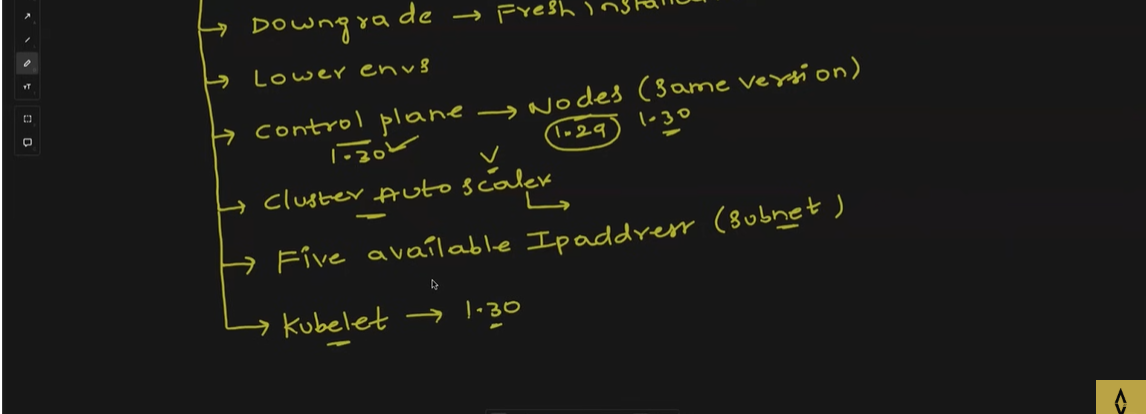 → Downgrade → Fresh
→ Lower envs
→ Control plane → Nodes (same version)
1.30 ✓ 1.29 1.30
→ Cluster Auto scaler
→ Five available Ipaddress (subnet)
→ Kubelet → 1.30